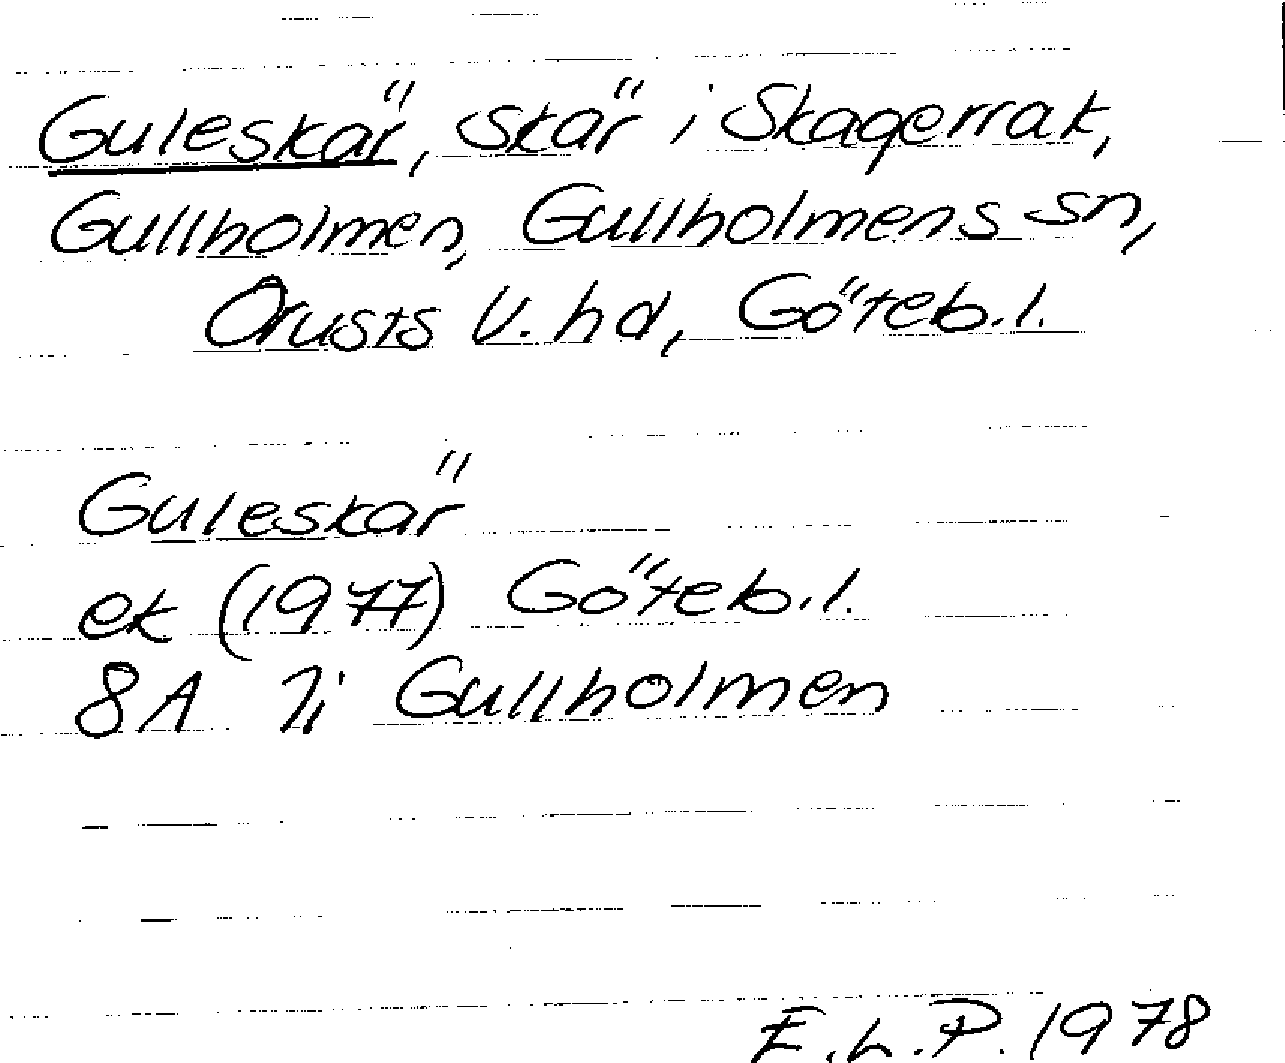 Guleskär, skär i Skagerrak,
Gullholmen, Gullholmens sn,
Orusts V. hd, Göteb.l.
Guleskär
ek (1977) Göteb.l.
8A 7i Gullholmen
E.L.P. 1978